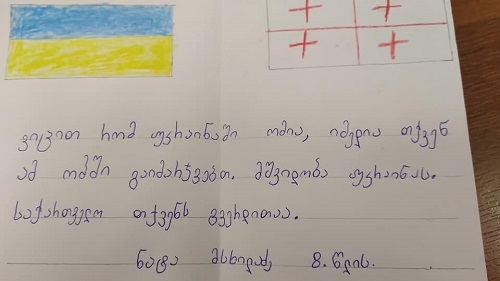 ვიცით რომ უკრაინაში ომია, იმედია თქვენ
ამ ომში გაიმარჯვებთ. მშვიდობა უკრაინას.
საქართველო თქვენს გვერდითაა.
ნატა მსხილაძე 8. წლის.